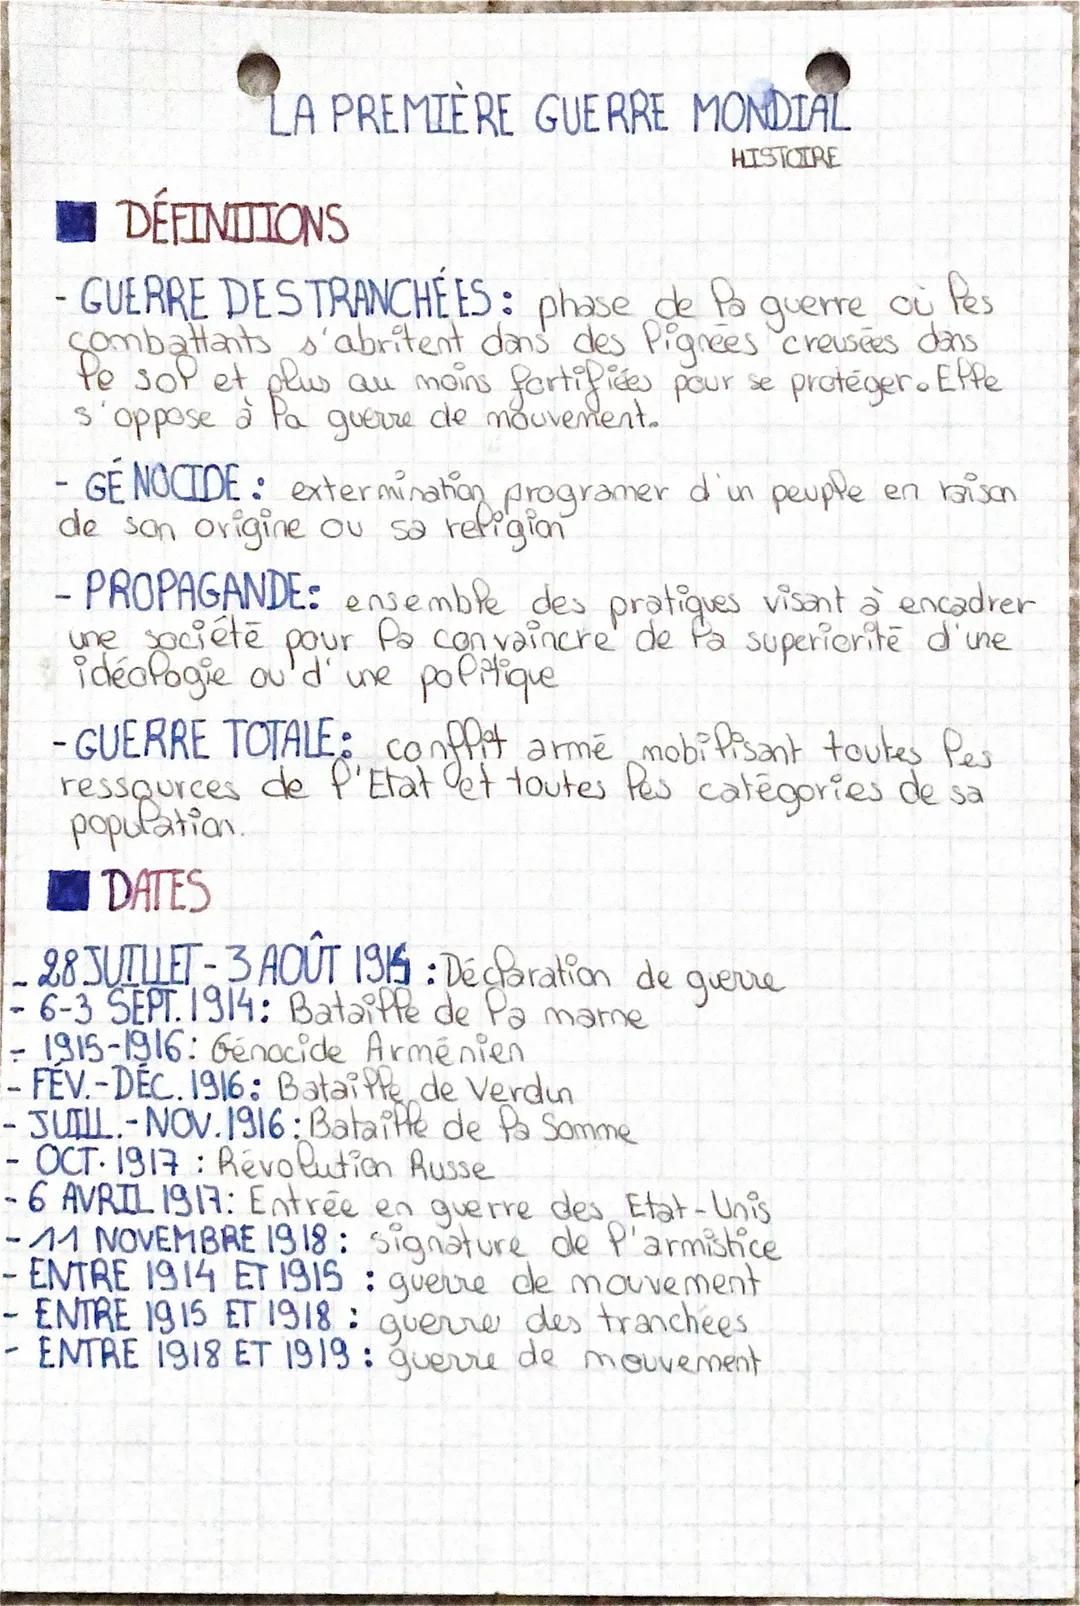 LA PREMIÈRE GUERRE MONDIAL
HISTOIRE
DÉFINITIONS
- GUERRE DES TRANCHÉES : phase de la guerre où les
combattants s'abritent dans des lignées creusées dans
le sol et plus au moins fortifiées pour se protéger. Elle
s'oppose à la guerre de mouvement.
- GÉNOCIDE : extermination programer d'un peuple en raison
de son origine ou sa religion
- PROPAGANDE : ensemble des pratiques visant à encadrer
une société pour la convaincre de la superiorité d'une
idéologie ou d'une politique
- GUERRE TOTALE : conflit armé mobilisant toutes les
ressources de l'Etat et toutes les catégories de sa
population.
DATES
- 28 JUILLET - 3 AOÛT 1914 : Déclaration de guerre
- 6-3 SEPT. 1914 : Bataille de la marne
- 1915-1916 : Génocide Arménien
- FÉV.-DÉC. 1916 : Bataille de Verdun
- JUILL.-NOV. 1916 : Bataille de la Somme
- OCT. 1917 : Révolution Russe
- 6 AVRIL 1917 : Entrée en guerre des Etat-Unis
- 11 NOVEMBRE 1918 : signature de l'armistice
- ENTRE 1914 ET 1915 : guerre de mouvement
- ENTRE 1915 ET 1918 : guerre des tranchées
- ENTRE 1918 ET 1919 : guerre de mouvement